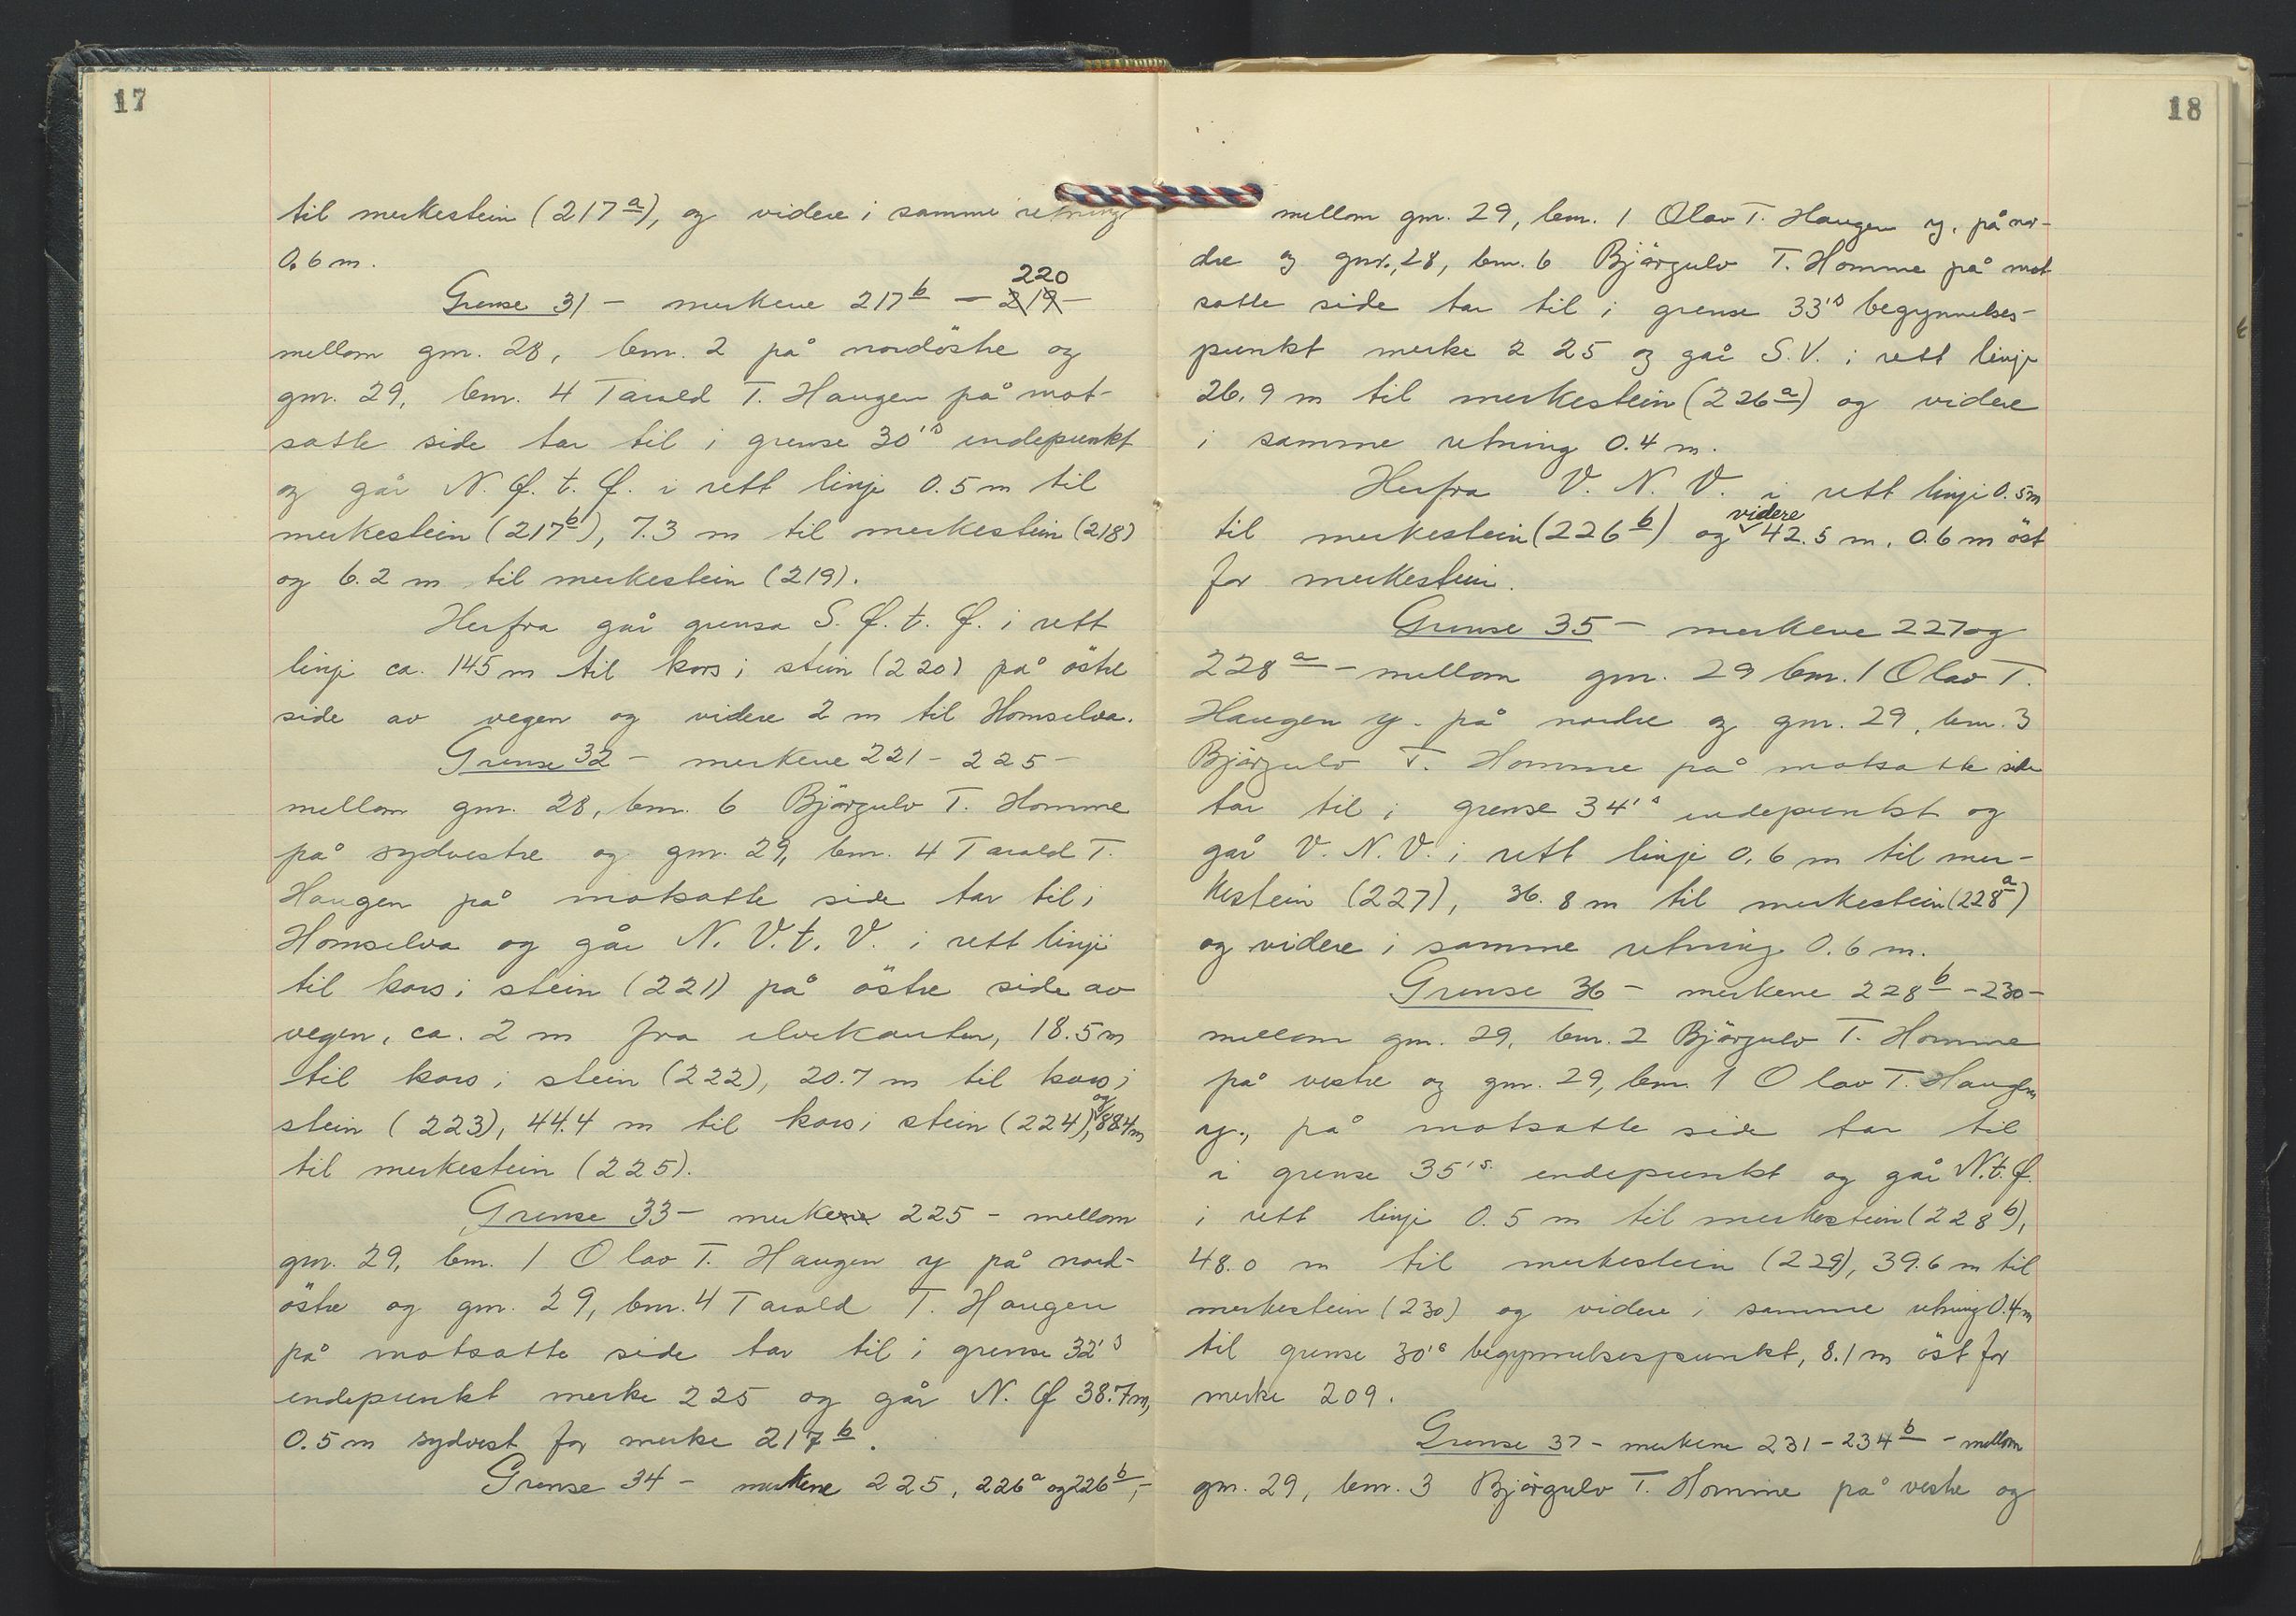 17
til merkestein (217a), og videre i samme retning
0.6 m.
Grense 31 – merkene 217b – 219 220 –
mellom gnr. 28, bnr. 2 på nordöstre og
gnr. 29, bnr. 4 Tarald T. Haugen på mot-
satte side tar til i grense 30's endepunkt
og går N. Ø. t. Ø. i rett linje 0.5 m til
merkestein (217b), 7.3 m til merkestein (218)
og 6.2 m til merkestein (219).
Herfra går grensa S. Ø. t. Ø. i rett
linje ca. 145 m til kors i stein (220) på östre
side av vegen og videre 2 m til Homselva.
Grense 32 – merkene 221 – 225 –
mellom gnr. 28, bnr. 6 Björgulv T. Homme
på sydvestre og gnr. 29, bnr. 4 Tarald T.
Haugen på motsatte side tar til i
Homselva og går N. V. t. V. i rett linje
til kors i stein (221) på östre side av
vegen, ca. 2 m fra elvekanten, 18.5 m
til kors i stein (222), 20.7 m til kors i
stein (223), 44.4 m til kors i stein (224), og 88.4 m
til merkestein (225).
Grense 33 – merkene 225 – mellom
gnr. 29, bnr. 1 Olav T. Haugen y på nord-
östre og gnr. 29, bnr. 4 Tarald T. Haugen
på motsatte side tar til i grense 32's
endepunkt merke 225 og går N. Ø 38.7 m,
0.5 m sydvest for merke 217b.
Grense 34 – merkene 225, 226a og 226b, –
18
mellom gnr. 29, bnr. 1 Olav T. Haugen y. på nor-
dre og gnr. 28, bnr. 6 Björgulv T. Homme på mot
satte side tar til i grense 33's begynnelses-
punkt merke 225 og går S. V. i rett linje
26.9 m til merkestein (226a) og videre
i samme retning 0.4 m.
Herfra V. N. V. i rett linje 0.5 m
til merkestein (226b) og videre 42.5 m, 0.6 m öst
for merkestein.
Grense 35 – merkene 227 og
228a – mellom gnr. 29 bnr. 1 Olav T.
Haugen y. på nordre og gnr. 29, bnr. 3
Björgulv T. Homme på motsatte side
tar til i grense 34's endepunkt og
går V. N. V. i rett linje 0.6 m til mer-
kestein (227), 36.8 m til merkestein (228a)
og videre i samme retning 0.6 m.
Grense 36 – merkene 228b – 230 –
mellom gnr. 29, bnr. 2 Björgulv T. Homme
på vestre og gnr. 29, bnr. 1 Olav T. Haugen
y., på motsatte side tar til
i grense 35's endepunkt og går N. t. Ø.
i rett linje 0.5 m til merkestein (228b),
48.0 m til merkestein (229), 39.6 m til
merkestein (230) og videre i samme retning 0.4 m
til grense 30's begynnelsespunkt, 8.1 m öst for
merke 209.
Grense 37 – merkene 231 – 234b – mellom
gnr. 29, bnr. 3 Björgulv T. Homme på vestre og